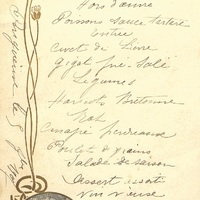 Hors d'œuvre
Poissons sauce tartare
Entrée
Civet de Lièvre
Gigot pré-Salé
Légumes
Haricots Bretonne
Rôt
Canapé perdreaux
Poulets de grains
Salade de saison
Dessert assorti
Vin vieux